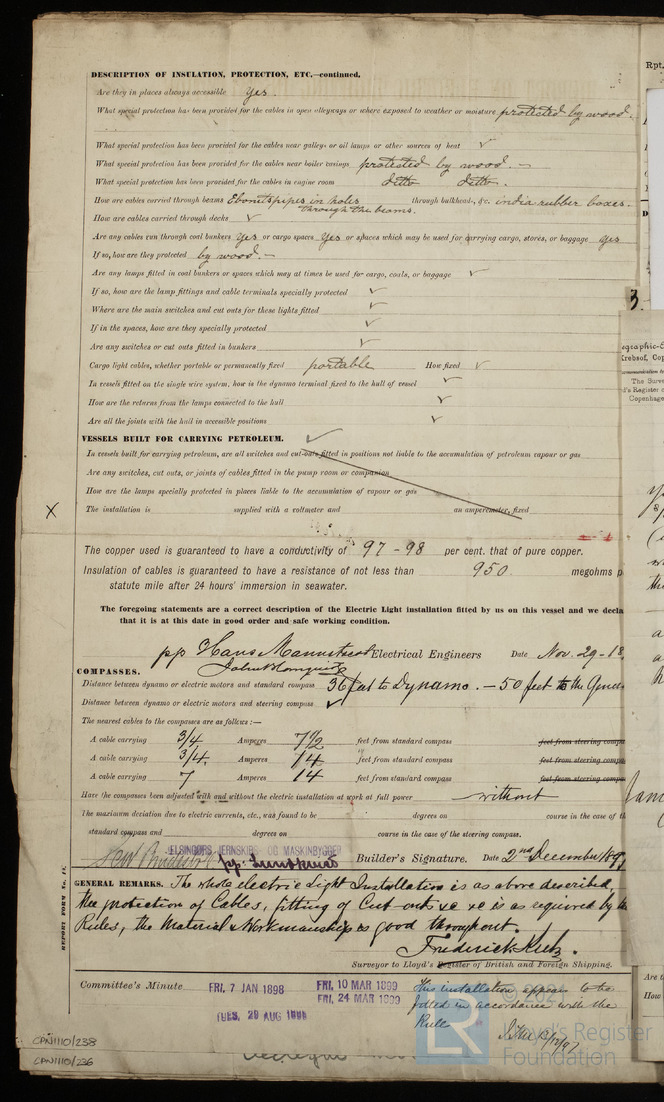 DESCRIPTION OF INSULATION, PROTECTION, ETC.—continued.
Rpt.
Are they in places always accessible yes.
What special protection has been provided for the cables in open alleyways or where exposed to weather or moisture protected by wood.
What special protection has been provided for the cables near galleys or oil lamps or other sources of heat ✓
What special protection has been provided for the cables near boiler casings protected by wood. —
What special protection has been provided for the cables in engine room ditto ditto.
How are cables carried through beams Ebonit pipes in holes through the beams. through bulkheads, &c. india rubber boxes.
How are cables carried through decks ✓
Are any cables run through coal bunkers yes or cargo spaces yes or spaces which may be used for carrying cargo, stores, or baggage yes
If so, how are they protected by wood. —
Are any lamps fitted in coal bunkers or spaces which may at times be used for cargo, coals, or baggage ✓
If so, how are the lamp fittings and cable terminals specially protected ✓
Where are the main switches and cut outs for these lights fitted ✓
3.
If in the spaces, how are they specially protected ✓
Are any switches or cut outs fitted in bunkers ✓
Cargo light cables, whether portable or permanently fixed portable How fixed ✓
In vessels fitted on the single wire system, how is the dynamo terminal fixed to the hull of vessel ✓
How are the returns from the lamps connected to the hull ✓
Are all the joints with the hull in accessible positions ✓
VESSELS BUILT FOR CARRYING PETROLEUM. ✓
In vessels built for carrying petroleum, are all switches and cut-outs fitted in positions not liable to the accumulation of petroleum vapour or gas
Are any switches, cut outs, or joints of cables fitted in the pump room or companion
How are the lamps specially protected in places liable to the accumulation of vapour or gas
X The installation is supplied with a voltmeter and an amperemeter, fixed
The copper used is guaranteed to have a conductivity of 97 - 98 per cent. that of pure copper.
Insulation of cables is guaranteed to have a resistance of not less than 950 megohms p
statute mile after 24 hours' immersion in seawater.
The foregoing statements are a correct description of the Electric Light installation fitted by us on this vessel and we decla
that it is at this date in good order and safe working condition.
pp Hans Electrical Engineers Date Nov. 29 - 18
COMPASSES.
Distance between dynamo or electric motors and standard compass 36 feet to Dynamo. — 50 feet to the
Distance between dynamo or electric motors and steering compass ✓
The nearest cables to the compasses are as follows:—
A cable carrying 3/4 Amperes 7 1/2 feet from standard compass feet from steering compa
A cable carrying 3/4 Amperes 14 feet from standard compass feet from steering compa
A cable carrying 7 Amperes 14 feet from standard compass feet from steering compa
Have the compasses been adjusted with and without the electric installation at work at full power without
The maximum deviation due to electric currents, etc., was found to be degrees on course in the case of th
standard compass and degrees on course in the case of the steering compass.
HELSINGØRS JERNSKIBS- OG MASKINBYGGERI
Builder's Signature. Date 2nd December 189
GENERAL REMARKS. The whole electric Light Installation is as above described,
the protection of Cables, fitting of Cut-outs &c &c is as required by th
Rules, the Material & Workmanship is good throughout.
Frederick
Surveyor to Lloyd's Register of British and Foreign Shipping.
REPORT FORM No. 11.
Committee's Minute FRI. 7 JAN 1898 FRI. 10 MAR 1899
FRI. 24 MAR 1899
TUES. 29 AUG 1899
This installation appears to be
fitted in accordance with the
Rule
LR
© 2021
Lloyd's Register
Foundation
CPN1110/238
CPN1110/236